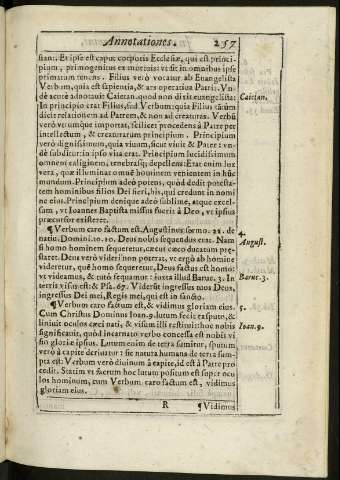 Annotationes. 257
stani. Et ipse est caput corporis Ecclesiæ, qui est princi-
pium, primogenitus ex mortuis: vt sit in omnibus ipse
primatum tenens. Filius verò vocatur ab Euangelista
Verbum, quia est sapientia, & ars operatiua Patris. Vn-
dè acutè adnotauit Caietan. quod non dixit euangelista:
Caietan.
In principio erat Filius, sed Verbum: quia Filius
dicit relationem ad Patrem, & non ad creaturas. Verbū
verò vtrumque importat, scilicet procedens à Patre per
intellectum, & creaturarum principium. Principium
verò dignissimum, quia viuum, sicut viuit & Pater: vn-
dè subditur: in ipso vita erat. Principium lucidissimum
omnem caliginem, tenebrasq; depellens: Erat enim lux
vera, quæ illuminat omnē hominem venientem in hūc
mundum. Principium adeò potens, quòd dedit potesta-
tem hominibus filios Dei fieri, his, qui credunt in nomi
ne eius. Principium denique adeò sublime, atque excel-
sum, vt Ioannes Baptista missus fuerit à Deo, vt ipsius
præcursor existeret.
¶ Verbum caro factum est. Augustinus sermo. 22. de
4.
natiu. Domini. to. 10. Deus nobis sequendus erat. Nam
August.
si homo hominem sequeretur, cæcus cæco ducatum præ-
staret. Deus verò videri non poterat, vt ergò ab homine
videretur, quē homo sequeretur, Deus factus est homo:
vt videamus, & cuncti sequamur: iuxta illud Baruc. 3. In
Baruc. 3.
terris visus est: & Psa. 67. Viderūt ingressus tuos Deus,
ingressus Dei mei, Regis mei, qui est in sancto.
¶ Verbum caro factum est, & vidimus gloriam eius.
5.
Cum Christus Dominus Ioan. 9. lutum fecit ex sputo, &
liniuit oculos cæci nati, & visum illi restituit: hoc nobis
Ioan. 9.
significauit, quòd incarnati verbo concessa est nobis vi
sio gloriæ ipsius. Lutum enim de terra sumitur, sputum
verò à capite deriuatur: sic natura humana de terra sum-
pta est: Verbum verò diuinum à capite, id est à Patre pro
cedit. Statim vt sacrum hoc lutum positum est super ocu
los hominum, cum Verbum caro factum est, vidimus
gloriam eius.
R ¶ Vidimus